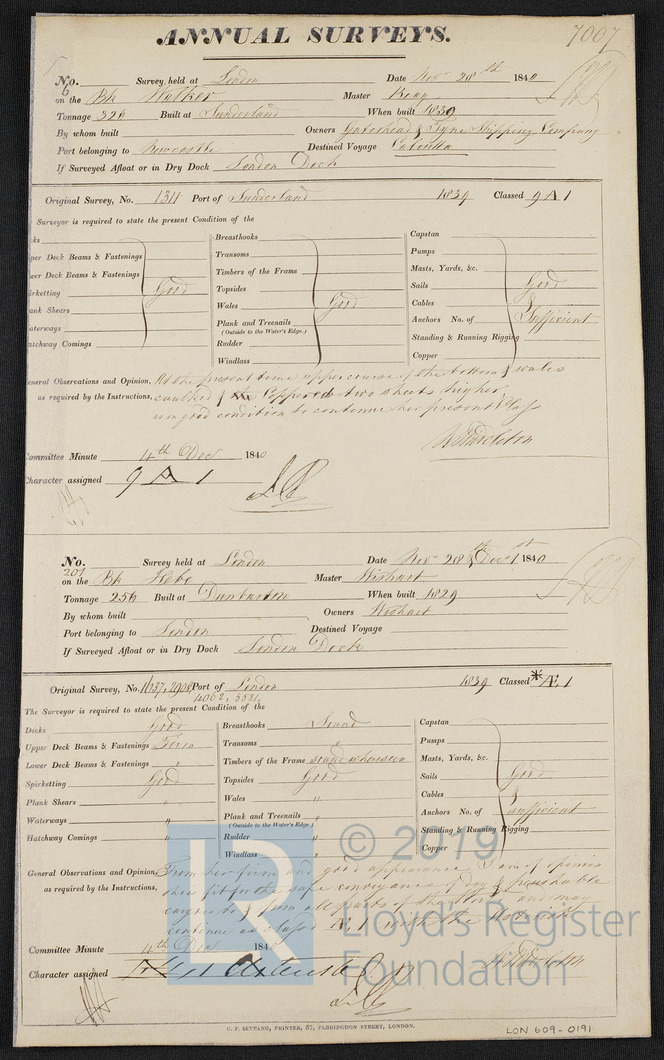 7007
ANNUAL SURVEYS.
No. 6 Survey held at London Date Nov 28th 1840
on the Bk Walker Master
Tonnage 326 Built at Sunderland When built 1839
By whom built Owners Gateshead & Tyne Shipping Company
Port belonging to Newcastle Destined Voyage Calcutta
If Surveyed Afloat or in Dry Dock London Dock
Original Survey, No. 1311 Port of Sunderland 1839 Classed 9 A 1
Surveyor is required to state the present Condition of the
cks
per Deck Beams & Fastenings
wer Deck Beams & Fastenings
irketting Good
ank Shears
aterways
atchway Comings
Breasthooks
Transoms
Timbers of the Frame
Topsides
Wales Good
Plank and Treenails
(Outside to the Water's Edge.)
Rudder
Windlass
Capstan
Pumps
Masts, Yards, &c.
Sails Good
Cables &
Anchors No. of Sufficient
Standing & Running Rigging
Copper
eneral Observations and Opinion, At the present time upper course of the bottom & wales
as required by the Instructions, caulked & Coppered two sheets higher,
in good condition to continue her present Class
Committee Minute 4th Dec 1840
Character assigned 9 A 1
No. 201 Survey held at London Date Nov 28 & Dec 1st 1840
on the Bk Hebe Master Wishart
Tonnage 256 Built at Dumbarton When built 1829
By whom built Owners Wishart
Port belonging to London Destined Voyage
If Surveyed Afloat or in Dry Dock London Dock
Original Survey, No. Port of London 1839 Classed * Æ 1
4062, 5531,
The Surveyor is required to state the present Condition of the
Decks Good
Upper Deck Beams & Fastenings Firm
Lower Deck Beams & Fastenings "
Spirketting Good
Plank Shears "
Waterways "
Hatchway Comings "
Breasthooks Sound
Transoms "
Timbers of the Frame sound where seen
Topsides Good
Wales "
Plank and Treenails "
(Outside to the Water's Edge.)
Rudder "
Windlass "
Capstan
Pumps
Masts, Yards, &c.
Sails Good
Cables &
Anchors No. of sufficient
Standing & Running Rigging
Copper
General Observations and Opinion, From her form and good appearance I am of opinion
as required by the Instructions, she is fit for the safe conveyance of dry & perishable
cargoes to & from all parts of the World and may
continue as classed Æ 1 with the
Committee Minute 4th Dec 1840
Character assigned
C. F. SEYFANG, PRINTER, 57, FARRINGDON STREET, LONDON.
LON 609-0191
© 2019
LR
Lloyd's Register
Foundation